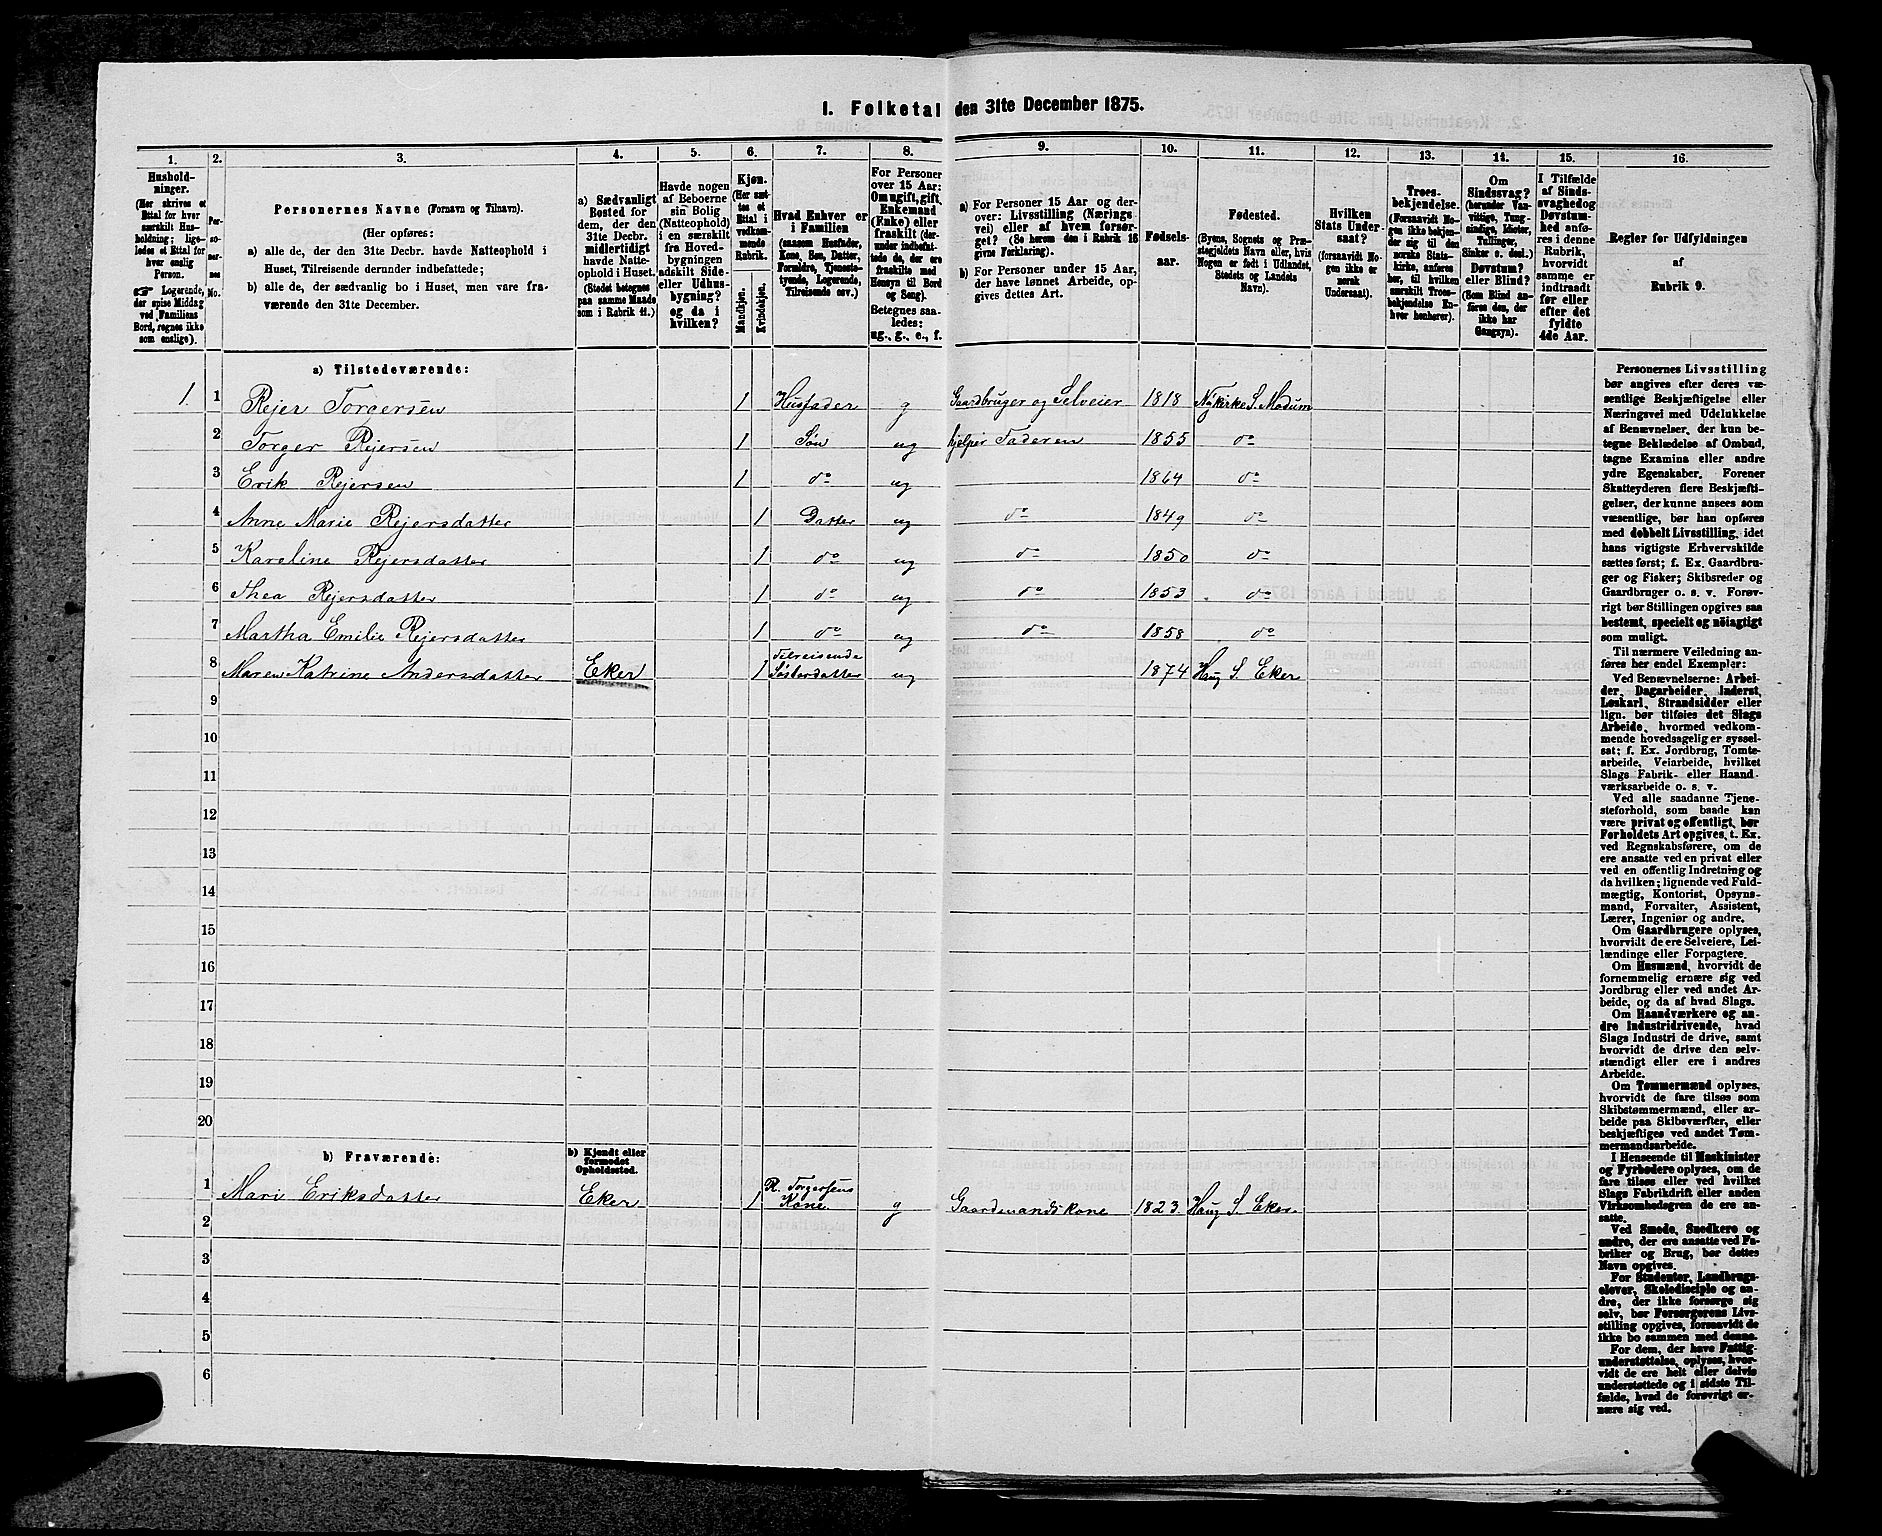 1. Folketal den 31te December 1875.
1. 2. 3. 4. 5. 6. 7. 8. 9. 10. 11. 12. 13. 14. 15. 16.
Hushold-
ninger.
(Her skrives et
Ettal for hver
særskilt Hus-
holdning; lige-
ledes et Ettal for
hver enslig
Person.
☞ Logerende,
der spise Middag
ved Familiens
Bord, regnes ikke
som enslige).
Per-
so-
ner-
nes
No.
Personernes Navne (Fornavn og Tilnavn).
(Her opføres:
a) alle de, der den 31te Decbr. havde Natteophold i
Huset, Tilreisende derunder indbefattede;
b) alle de, der sædvanlig bo i Huset, men vare fra-
værende den 31te December.
a) Sædvanligt
Bosted for
dem, der den
31te Decbr.
midlertidigt
havde Natte-
ophold i Huset.
(Stedet betegnes
paa samme Maade
som i Rubrik 11.)
Havde nogen
af Beboerne
sin Bolig
(Natteophold)
i en særskilt
fra Hoved-
bygningen
adskilt Side-
eller Udhus-
bygning?
og da i
hvilken?
Kjøn.
(Her sæt-
tes et
Ettal i
vedkom-
mende
Rubrik.
Mandkjøn.
Kvindekjøn.
Hvad Enhver er
i Familien
(saasom Husfader,
Kone, Søn, Datter,
Forældre, Tjeneste-
tyende, Logerende,
Tilreisende osv.)
For Personer
over 15 Aar:
Om ugift, gift,
Enkemand
(Enke) eller
fraskilt (der-
under indbefat-
tede de, der ere
fraskilte med
Hensyn til Bord
og Seng).
Betegnes saa-
ledes:
ug., g., e., f.
a) For Personer 15 Aar og der-
over: Livsstilling (Nærings-
vei) eller af hvem forsør-
get? (Se herom den i Rubrik 16
givne Forklaring).
b) For Personer under 15 Aar,
der have lønnet Arbeide, op-
gives dettes Art.
Fødsels-
aar.
Fødested.
(Byens, Sognets og Præ-
stegjeldets Navn eller, hvis
Nogen er født i Udlandet,
Stedets og Landets
Navn).
Hvilken
Stats Under-
saat?
(forsaavidt No-
gen ikke er
norsk
Undersaat).
Troes-
bekjendelse.
(Forsaavidt No-
gen ikke bekjen-
der sig til den
norske Stats-
kirke, anføres
her, til hvilken
særskilt Troes-
bekjendelse En-
hver henhører).
Om
Sindssvag?
(herunder Van-
vittige, Tung-
sindige, Idioter,
Tullinger,
Sinker o. desl.).
Døvstum?
eller Blind?
(Som Blind an-
føres den, der
ikke har
Gangsyn).
I Tilfælde
af Sinds-
svaghed og
Døvstum-
hed anfø-
res i denne
Rubrik,
hvorvidt
samme er
indtraadt
før eller
efter det
fyldte
4de Aar.
Regler for Udfyldningen
af
Rubrik 9.
a) Tilstedeværende:
1. 1 Rejer Torgersen 1 Husfader g Gaardbruger og Selveier 1818 Nykirke S. Modum
2 Torger Rejersen 1 Søn ug hjelper Faderen 1855 do
3 Erik Rejersen 1 do ug 1864 do
4 Anne Marie Rejersdatter 1 Datter ug do 1849 do
5 Karoline Rejersdatter 1 do ug do 1850 do
6 Thea Rejersdatter 1 do ug do 1853 do
7 Martha Emilie Rejersdatter 1 do ug do 1858 do
8 Maren Katrine Andersdatter Eker 1 Tilreisende Søsterdatter ug 1874 Haug S. Eker
9
10
11
12
13
14
15
16
17
18
19
20
b) Fraværende:
b) Kjendt eller
formodet
Opholdssted.
1 Mari Eriksdatter Eker 1 R. Torgersens Kone g Gaardmandskone 1823. Haug S. Eker
2
3
4
5
6
Personernes Livsstilling
bør angives efter deres væ-
sentlige Beskjæftigelse eller
Næringsvei med Udelukkelse
af Benævnelser, der kun be-
tegne Beklædelse af Ombud,
tagne Examina eller andre
ydre Egenskaber. Forener
Skatteyderen flere Beskjæfti-
gelser, der kunne ansees som
væsentlige, bør han opføres
med dobbelt Livsstilling, idet
hans vigtigste Erhvervskilde
sættes først; f. Ex. Gaardbru-
ger og Fisker; Skibsreder og
Gaardbruger o. s. v. Forøv-
rigt bør Stillingen opgives saa
bestemt, specielt og nøiagtigt
som muligt.
Til nærmere Veiledning an-
føres her endel Exempler:
Ved Benævnelserne: Arbei-
der, Dagarbeider, Inderst,
Løskarl, Strandsidder eller
lign. bør tilføies det Slags
Arbeide, hvormed vedkom-
mende hovedsagelig er syssel-
sat; f. Ex. Jordbrug, Tomte-
arbeide, Veiarbeide, hvilket
Slags Fabrik- eller Haand-
værksarbeide o. s. v.
Ved alle saadanne Tjene-
steforhold, som baade kan
være privat og offentligt, bør
Forholdets Art opgives, t. Ex.
ved Regnskabsførere, om de
ere ansatte ved en privat eller
ved en offentlig Indretning og
da hvilken; lignende ved Fuld-
mægtig, Kontorist, Opsyns-
mand, Forvalter, Assistent,
Lærer, Ingeniør og andre.
Om Gaardbrugere oplyses,
hvorvidt de ere Selveiere, Lei-
lændinge eller Forpagtere.
Om Husmænd, hvorvidt de
fornemmelig ernære sig ved
Jordbrug eller ved andet Ar-
beide, og da af hvad Slags.
Om Haandværkere og an-
dre Industridrivende, hvad
Slags Industri de drive, samt
hvorvidt de drive den selv-
stændigt eller ere i andres
Arbeide.
Om Tømmermænd oplyses,
hvorvidt de fare tilsøs som
Skibstømmermænd, eller ar-
beide paa Skibsværfter, eller
beskjæftiges ved andet Tøm-
mermandsarbeide.
I Henseende til Maskinister
og Fyrbødere oplyses, om de
fare tilsøs eller ved hvilket
Slags Fabrikdrift eller anden
Virksomhedsgren de ere an-
satte.
Ved Smede, Snedkere og
andre, der ere ansatte ved Fa-
briker og Brug, bør dettes
Navn opgives.
For Studenter, Landbrugs-
elever, Skoledisciple og an-
dre, der ikke forsørge sig
selv, bør Forsørgerens Livs-
stilling opgives, forsaavidt de
ikke bo sammen med denne.
For dem, der have Fattig-
understøttelse, oplyses, hvor-
vidt de ere helt eller delvis
understøttede og i sidste Til-
fælde, hvad de forøvrigt er-
nære sig ved.